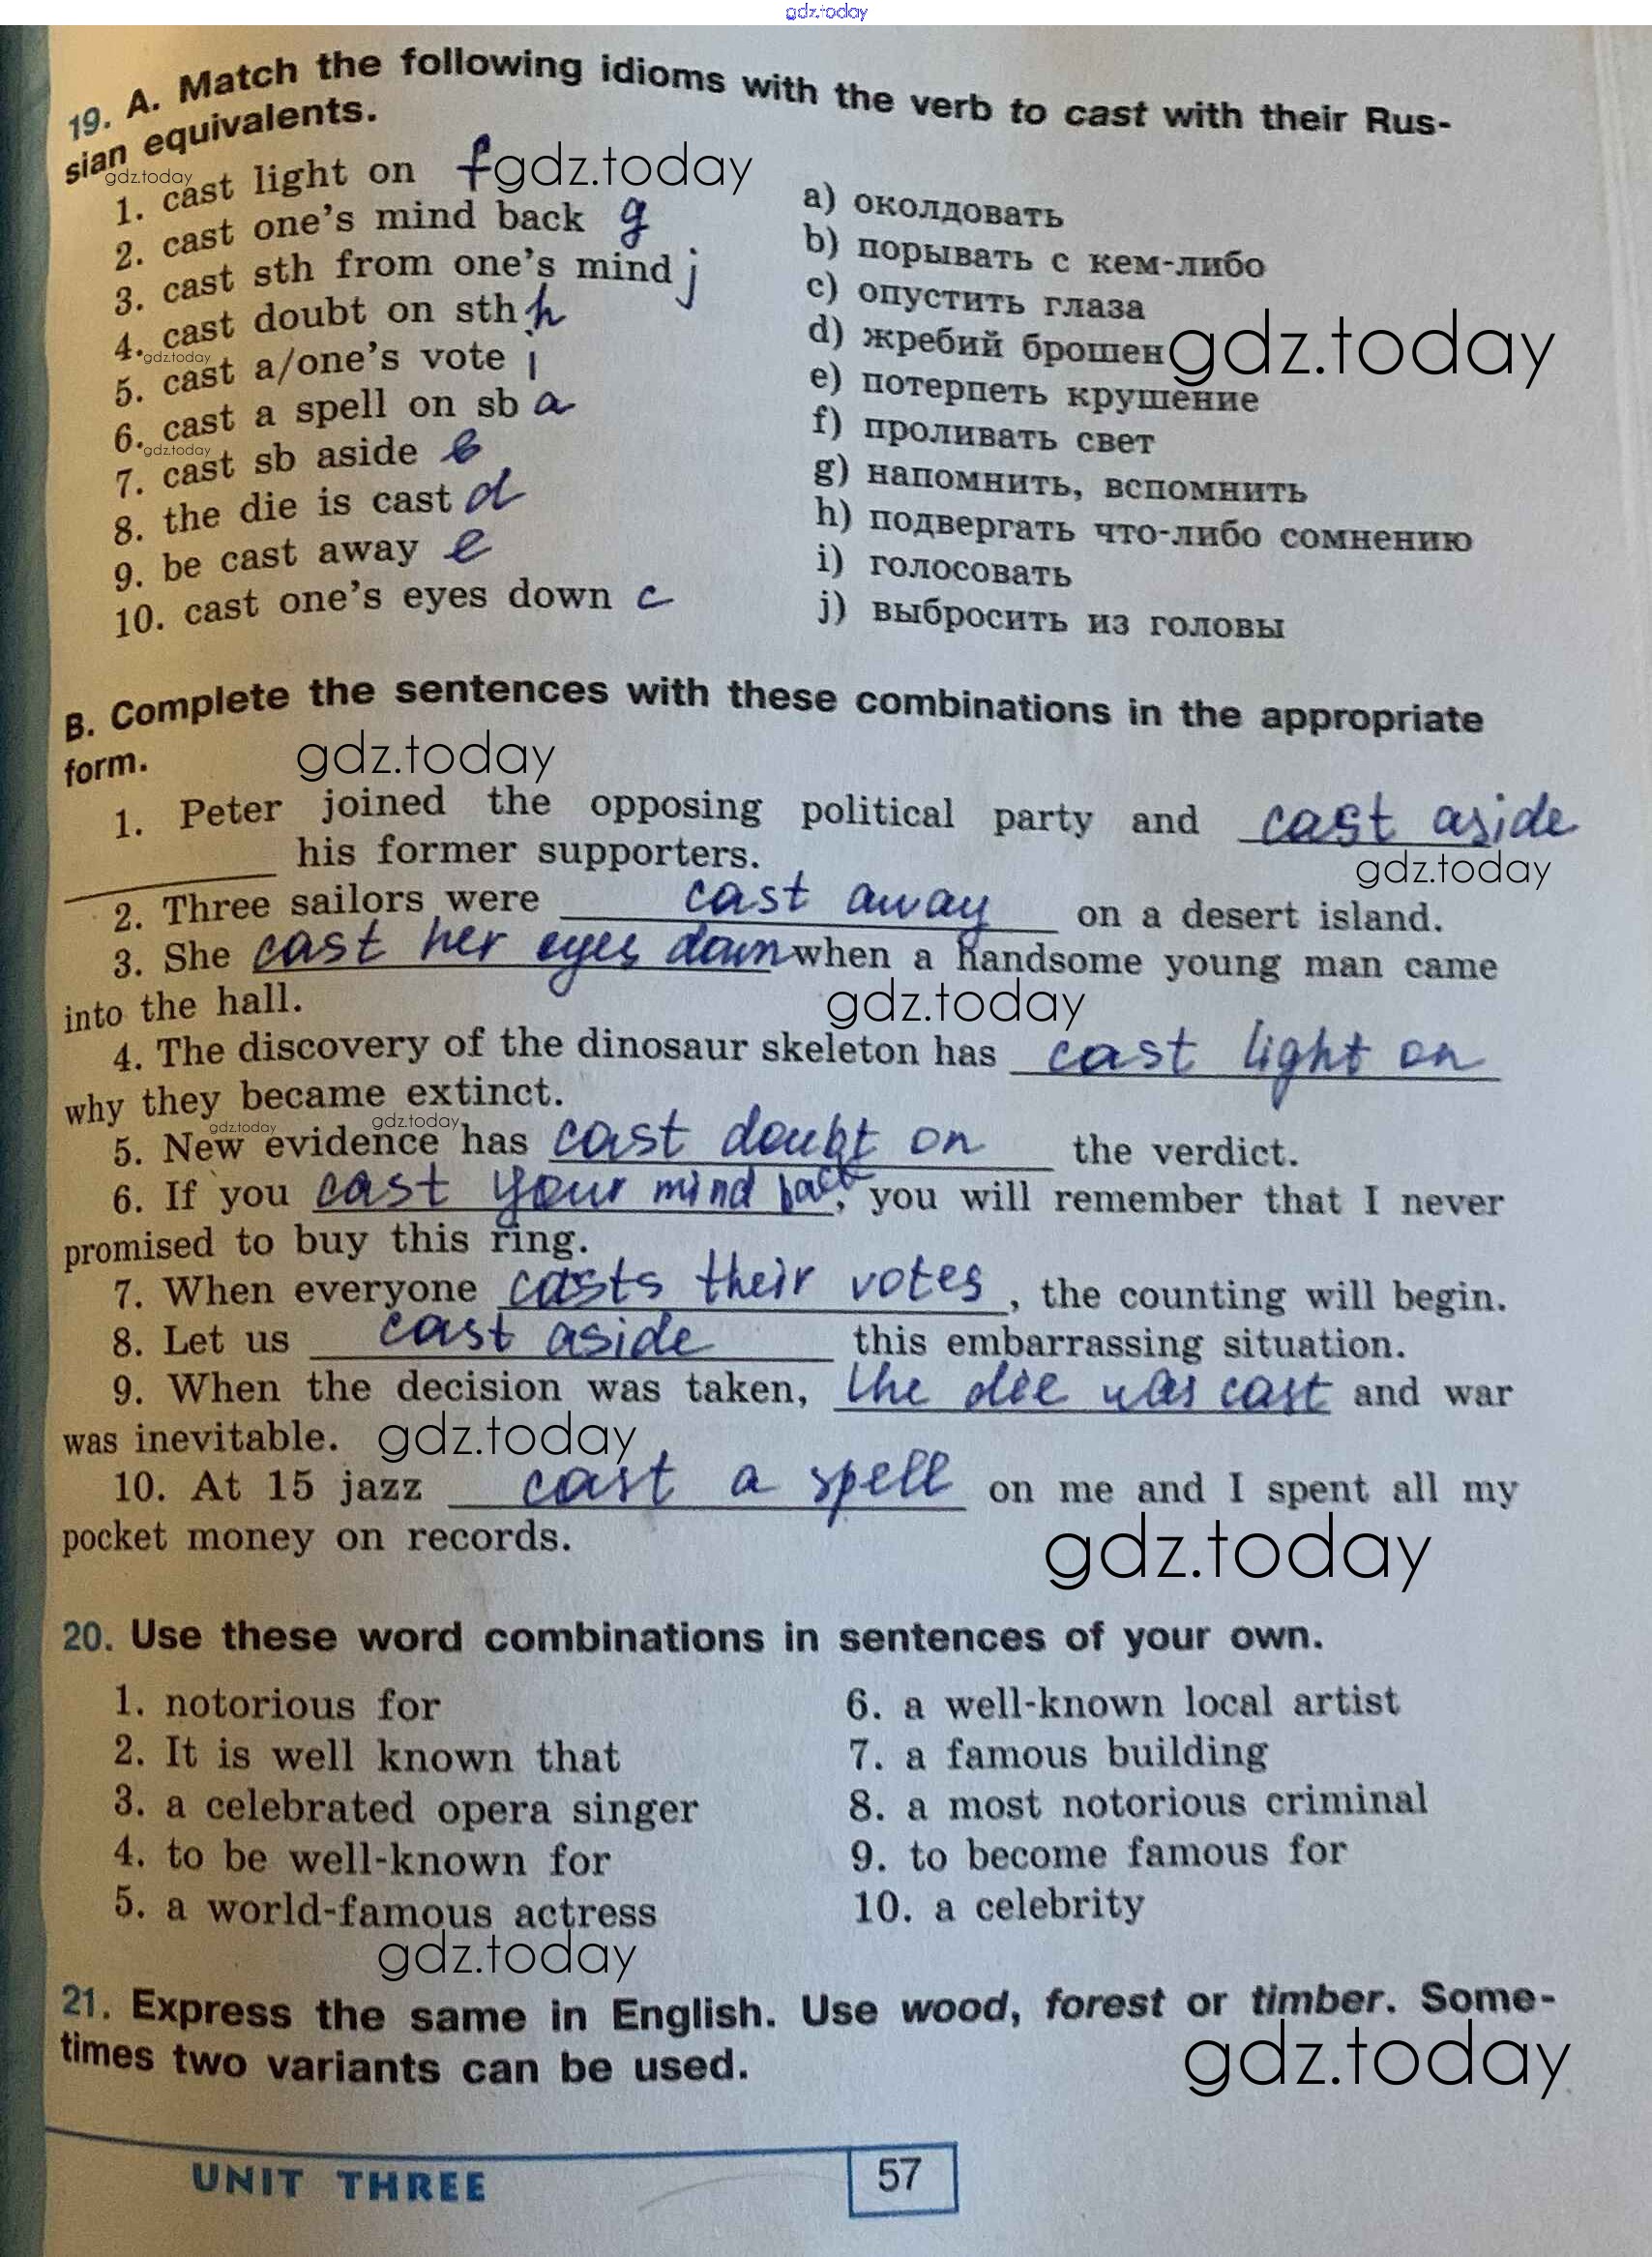 gdz.today
19. A. Match the following idioms with the verb to cast with their Rus-
sian equivalents.
gdz.today
gdz.today
1. cast light on f
2. cast one's mind back g
3. cast sth from one's mind j
4. cast doubt on sth h
gdz.today
5. cast a/one's vote i
6. cast a spell on sb a
gdz.today
7. cast sb aside b
8. the die is cast d
9. be cast away e
10. cast one's eyes down c
a) околдовать
b) порывать с кем-либо
c) опустить глаза
d) жребий брошен
gdz.today
e) потерпеть крушение
f) проливать свет
g) напомнить, вспомнить
h) подвергать что-либо сомнению
i) голосовать
j) выбросить из головы
B. Complete the sentences with these combinations in the appropriate
form.
gdz.today
1. Peter joined the opposing political party and cast aside
his former supporters.
gdz.today
2. Three sailors were cast away on a desert island.
3. She cast her eyes down when a handsome young man came
into the hall.
gdz.today
4. The discovery of the dinosaur skeleton has cast light on
why they became extinct.
gdz.today
gdz.today
5. New evidence has cast doubt on the verdict.
6. If you cast your mind back, you will remember that I never
promised to buy this ring.
7. When everyone casts their votes, the counting will begin.
8. Let us cast aside this embarrassing situation.
9. When the decision was taken, the die was cast and war
was inevitable.
gdz.today
10. At 15 jazz cast a spell on me and I spent all my
pocket money on records.
gdz.today
20. Use these word combinations in sentences of your own.
1. notorious for
2. It is well known that
3. a celebrated opera singer
4. to be well-known for
5. a world-famous actress
6. a well-known local artist
7. a famous building
8. a most notorious criminal
9. to become famous for
10. a celebrity
gdz.today
21. Express the same in English. Use wood, forest or timber. Some-
times two variants can be used.
gdz.today
UNIT THREE
57